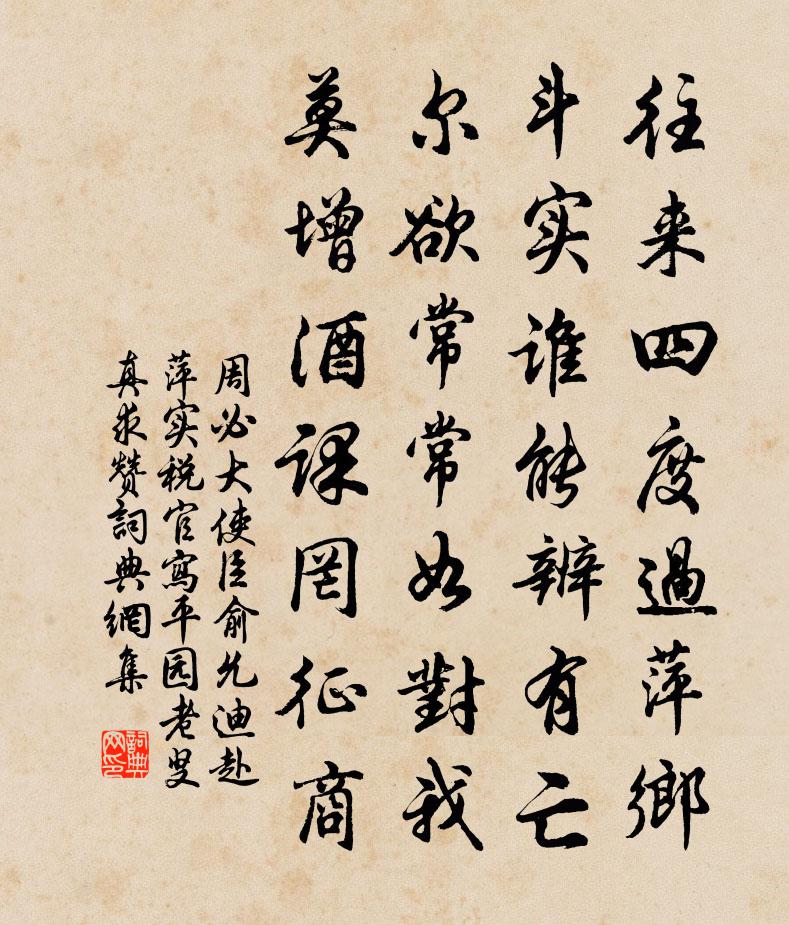 往来四度過萍鄉
斗实谁能辨有亡
尔欲常常如對我
莫增酒课罔征商
周必大使臣俞允迪赴
萍实税官寫平园老叟
真求赞詞典網集
詞典网印